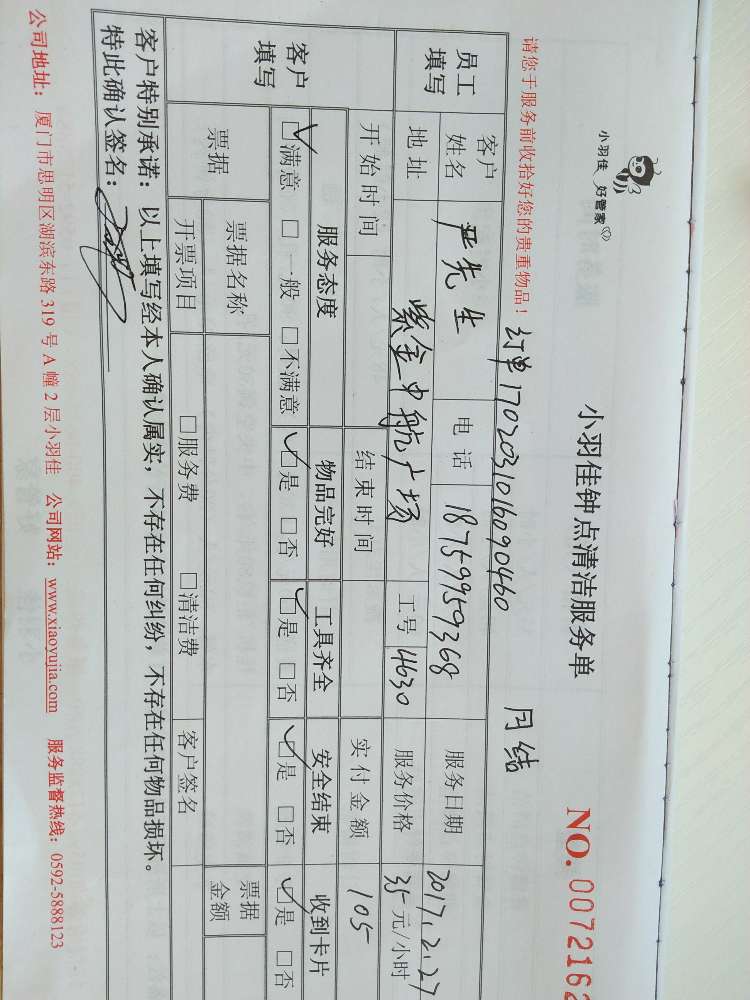 小羽佳 好管家
小羽佳钟点清洁服务单
NO. 0072162
请您于服务前收拾好您的贵重物品！
订单1702031016090460 月结
员工填写
客户姓名 严先生 电话 18759959368 服务日期 2017.2.27
地址 紫金中航广场 工号 4630 服务价格 35元/小时
开始时间 结束时间 实付金额 105
客户填写
服务态度 物品完好 工具齐全 安全结束 收到卡片
☑满意 □一般 □不满意 ☑是 □否 ☑是 □否 ☑是 □否 ☑是 □否
票据 票据名称 票据金额
开票项目 □服务费 □清洁费 客户签名
客户特别承诺：以上填写经本人确认属实，不存在任何纠纷，不存在任何物品损坏。
特此确认签名：
公司地址：厦门市思明区湖滨东路 319 号 A 幢 2 层小羽佳 公司网站：www.xiaoyujia.com 服务监督热线：0592-5888123